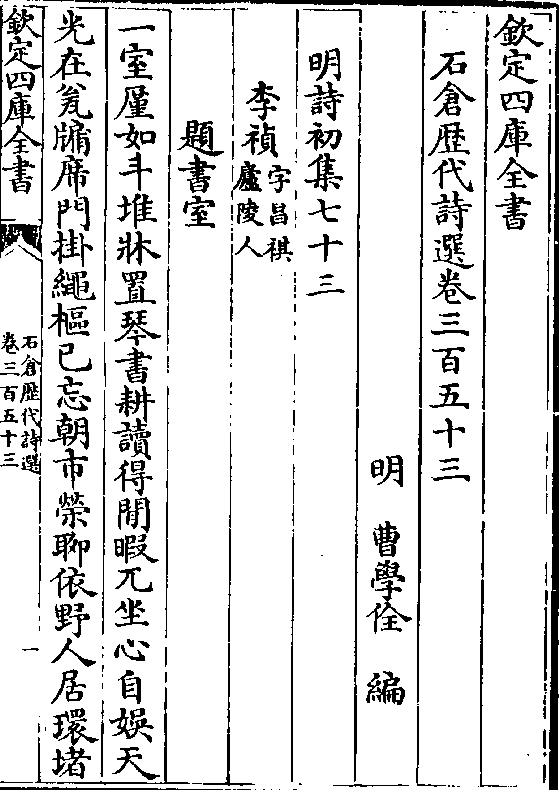 欽定四庫全書
石倉歴代詩選卷三百五十三
明　曹學佺　編
明詩初集七十三
李禎字昌祺廬陵人
題書室
一室厪如斗堆牀置琴書耕讀得閒暇兀坐心自娛天
光在瓮牖席門掛繩樞已忘朝市榮聊依野人居環堵
欽定四庫全書
石倉歴代詩選
卷三百五十三
一